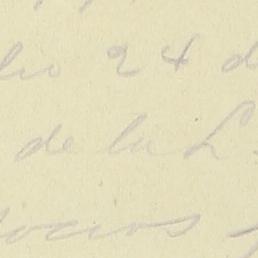 lio 24 d
de la L
ocios